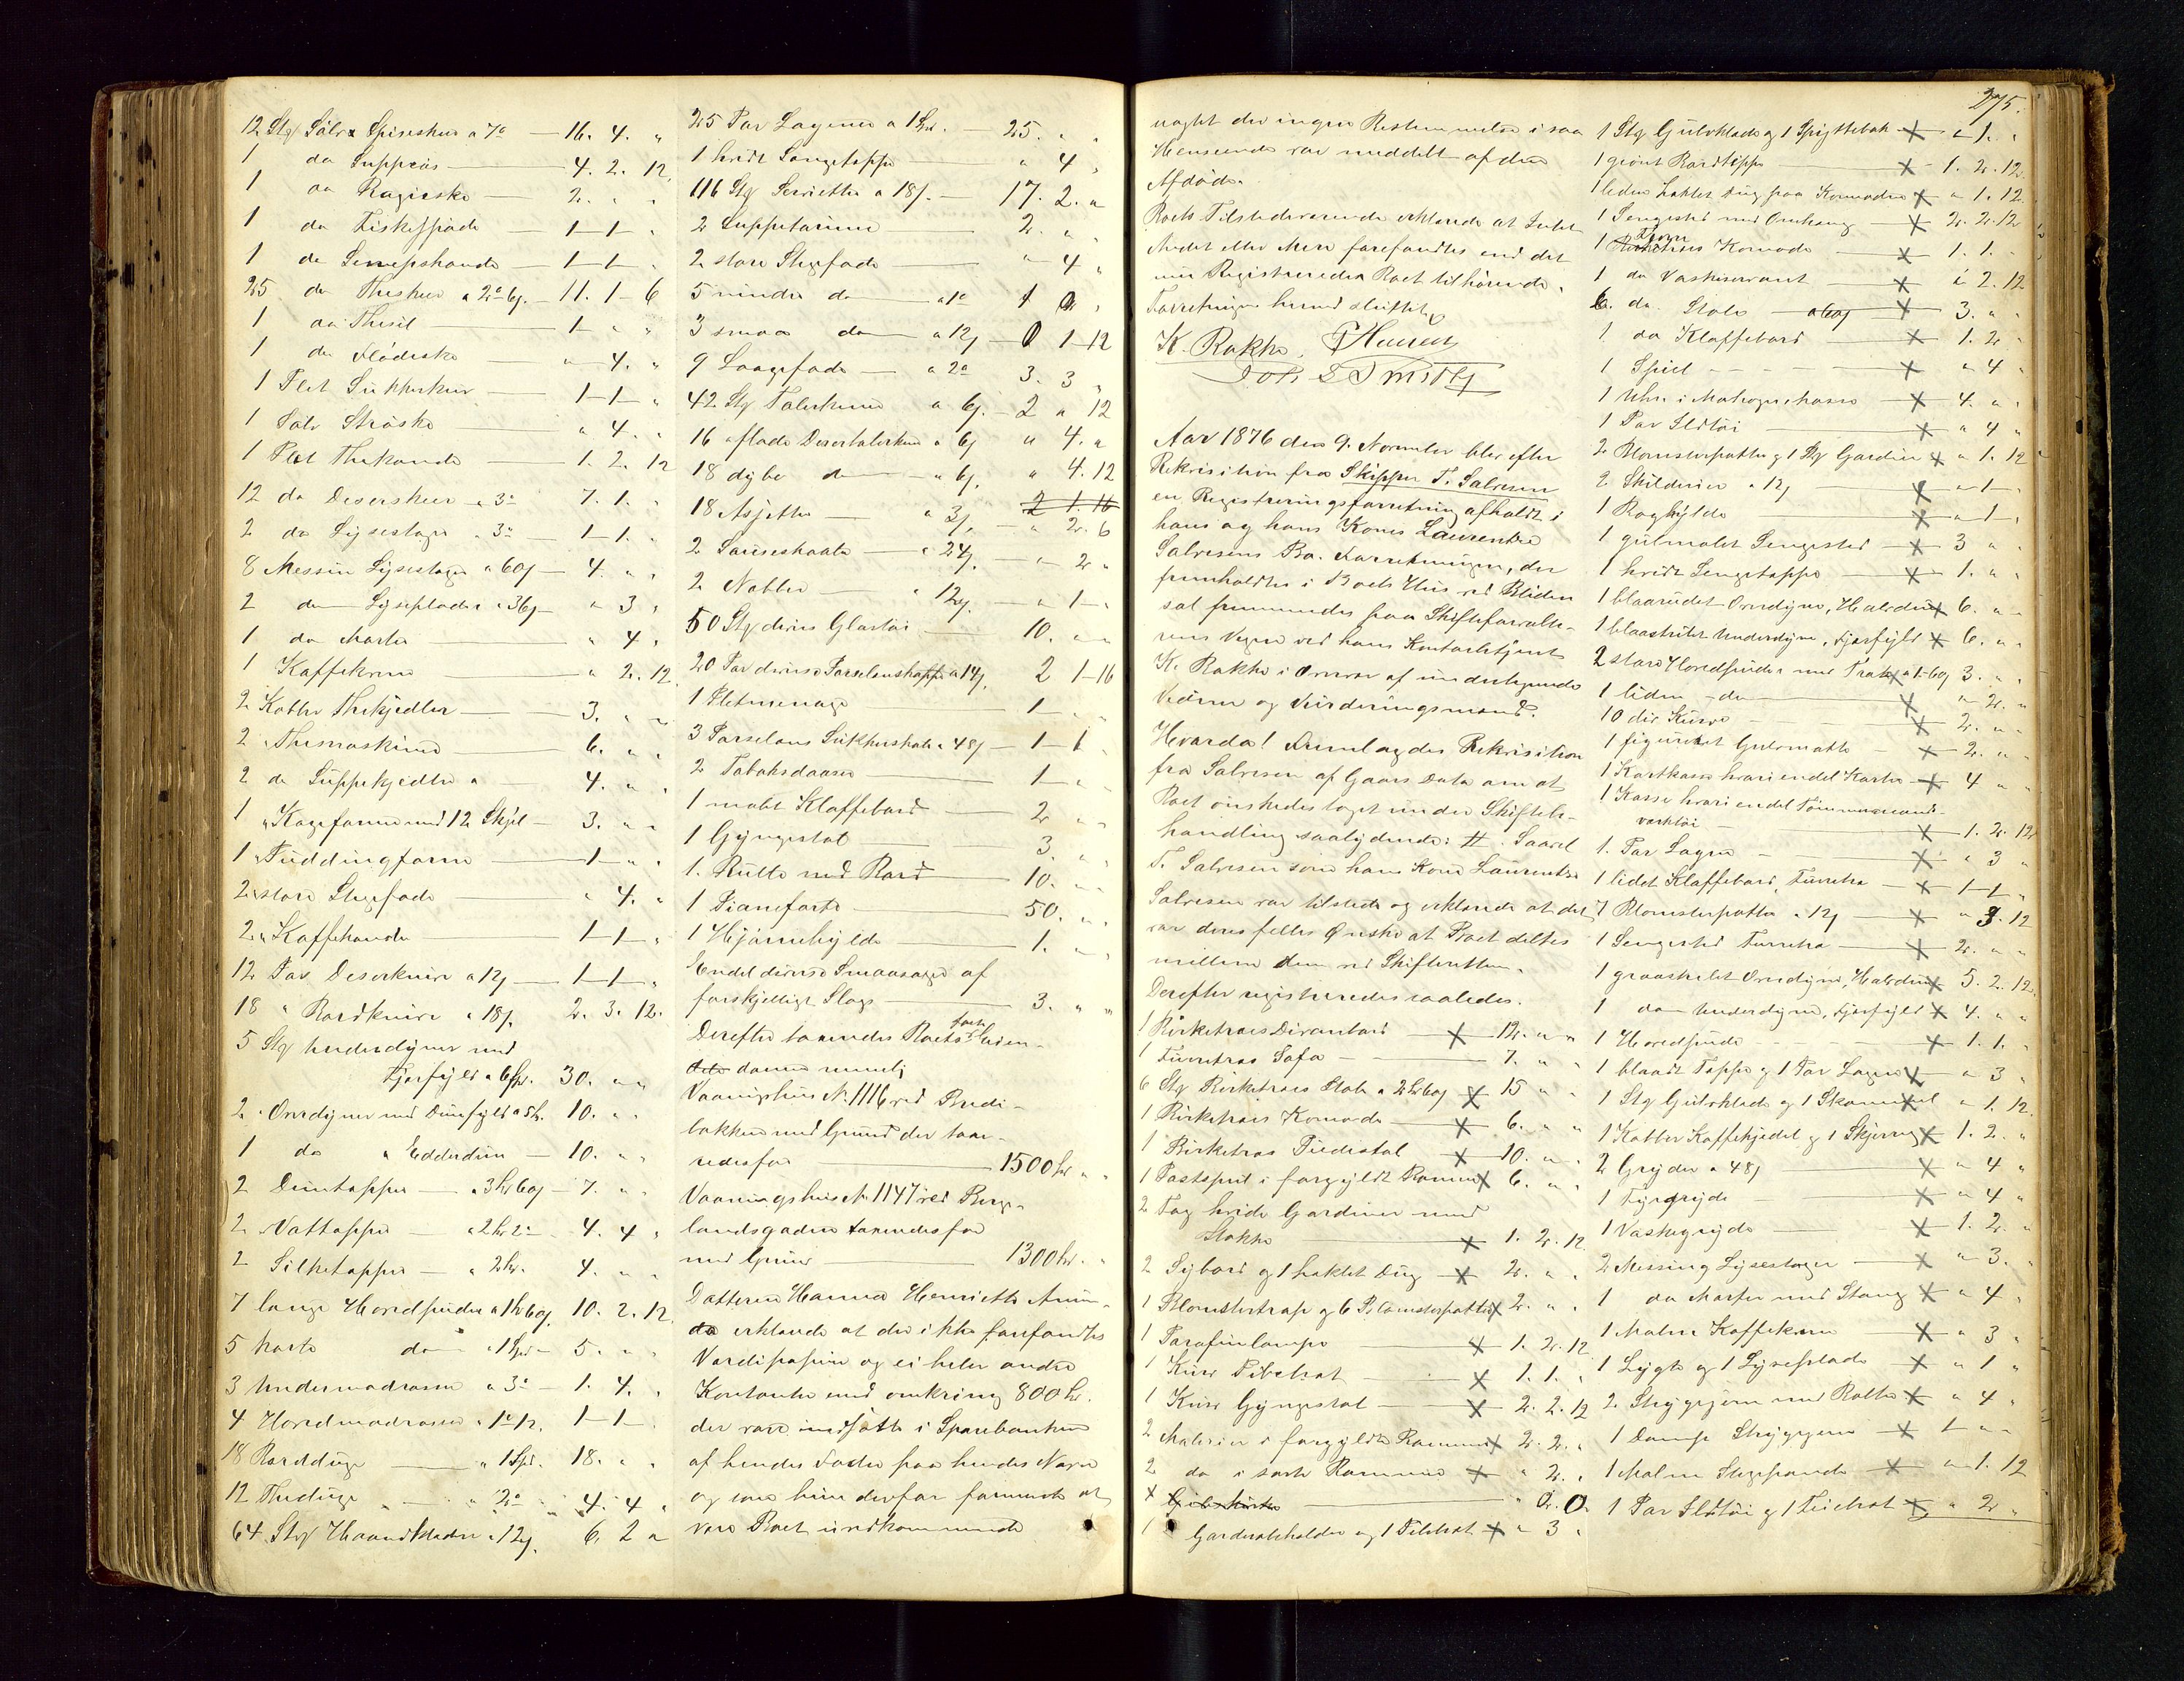 12 Stk Sølv Spiseskeer a 7º — 16. 4. "
1 do Suppeøs — 4. 2. 12
1 do Raguske — 2. " "
1 do Fiskespade — 1 — 1 "
1 do Sennepskande — 1 — 1 "
25 do Theskeer a 2º 6ß — 11. 1 — 6
1 do Thesil — 1 " "
1 do Flødeske — " 4. "
1 Plet Sukkerkurv — 1 — 1 "
1 Sølv Strøske — " 4. "
1 Plet Thekande — 1. 2. 12
12 do Desertskeer a 3º 7. 1. "
2 do Lysestager a 3º — 1 — 1. "
8 Messin Lysestager a 60ß — 4. " "
2 do Lyseplader a 36ß — " 3 "
1 do Morter — " 4 "
1 Kaffekvern — " 2. 12
2 Kobber Thekjedler — 3. " "
2 " Themaskiner — 6. " "
2 do Suppekjedler — 4. " "
1 " Kageform med 12 Skjel — 3. " "
1 " Puddingform — 1 — " "
2 " store Stegefade — " 4. "
2 " Kaffekander — 1 — 1 "
12 Par Desertknive a 12ß — 1 — 1 "
18 " Bordknive a 18ß. 2. 3. 12.
5 Stk Underdyner med
Fjærfyld a 6Spd. 30. " "
2 " Overdyner med Duunfyld a 5Spd. 10. " "
1 do " Edderduun — 10. " "
2 Duuntæpper — a 3Spd 60ß — 7. " "
2 " Vattæpper — a 2Spd 2º — 4. 4 "
2 Silketæpper — a 2Spd. 4. " "
7 lange Hovedpuder a 1Spd 60ß 10. 2. 12
5 korte do a 1Spd — 5. " "
3 Undermadrasser a 3º — 1. 4. "
4 Hovedmadrasser a 1º 12. 1 — 1
18 Bordduge — a 1Spd. 18. " "
12 Theduge " — " 2º " 4. 4 "
64 Stk Haandklæder a 12ß. 6. 2 "
25 Par Lagener a 1Spd. 25. " "
1 hvidt Sengetæppe " 4 "
116 Stk Servietter a 18ß. — 17. 2. "
2 Suppeterriner — 2. " "
2 store Stegefade — " 4 "
5 mindre do — a 1º 1 0 "
3 smaa do — a 12ß — 0 1 — 12
9 Laagefade — a 2º 3. 3 "
42 Stk Talerkener a 6ß. — 2 " 12
16 " flade Deserttalerkener a 6ß " 4. "
18 dybe do — a 6ß. " 4. 12
18 Asjetter — a 3ß. — " 2. 6
2 Sauseskaale — a 24ß. " — 2 "
2 Nobber — a 12ß. — " 1 — "
50 Stk divers Glastøi — 10. " "
20 Par diverse Porselenskopper a 14ß. 2 1 — 16
1 Pletmenage — 1 " "
3 Porselens Sukkerskaale a 48ß — 1 — 1 "
2 Tobaksdaaser — 1 — "
1 malet Klaffebord — 2 " "
1 Gyngestol — 3. " "
1. Rulle med Bord — 10. " "
1 Pianoforte — 50. " "
1 Hjørnehylde — 1. " "
Endel diverse Smaasager af
forskjellige Slags — 3. " "
Derefter taxeredes Boets faste Eien-
domme nemlig
Vaaningshus No. 1116 ved Bredi-
bakken med Grund der taxe-
redes for — 1500 Spd " "
Vaaningshus No. 1147 ved Berge-
landsgaden taxeredes for
med Grund — 1300 Spd. " "
Datteren Hanna Henriette Aman-
da erklærede at der ikke forefandtes
Værdipapirer og ei heller andre
Kontanter end omkring 800 Spd.
der vare indsatte i Sparebanken
af hendes Fader paa hendes Navn
og som hun derfor formente at
være Boet uvedkommende
275.
uagtet der ingen Bestemmelse i saa
Henseende var meddelt af den
Afdøde.
Boets Tilstedeværende erklærede at Intet
Andet eller Mere forefandtes end det
nu Registrerede Boet tilhørende.
Forretningen hermed sluttet.
K. Bakke. P Hansen
Joh S Smith
Aar 1876 den 9. November blev efter
Rekvisition fra Skipper T. Salvesen
en Registreringsforretning afholdt i
hans og hans Kone Laurentze
Salvesens Bo. Forretningen, der
fremholdtes i Boets Hus ved Bliden
sol fremmedes paa Skifteforvalte-
rens Vegne ved hans Kontorbetjent
K. Bakke i Overvær af undertegnede
Vidner og Vurderingsmænd.
Hvorda! Fremlagdes Rekvisition
fra Salvesen af Gaars Dato om at
Boet ønskedes taget under Skiftebe-
handling saalydende: #. Saavel
T. Salvesen som hans Kone Laurentze
Salvesen var tilstede og erklærede at det
var deres fælles Ønske at Boet deltes
mellem dem ved Skifteretten.
Derefter registreredes saaledes.
1 Birketræes Divanbord — x 12. " "
1 Furutræs Sofa — 7. " "
6 Stk Birketræes Stole a 2Spd 60ß x 15 " "
1 Birketræes Komode — x 6. " "
1 Birketræs Piedestal x 10. " "
1 Postspeil i forgyldt Ramme x 6. " "
2 Fag hvide Gardiner med
Stokke — x 1. 2. 12
2 Sybord og 1 heklet Dug — x 2. " "
1 Blomstertrap og 6 Blomsterpotter x 2. " "
1 Parafinlampe x 1. 2. 12
1 Kurv Pibebræt — x 1. 1. "
1 Kurv Gyngestol — x 2. 2. 12
2 Malerier i forgyldte Rammer x 2. 2. "
2 do i sorte Rammer x " 2. "
x " 0. 0
1 Garderobeholder og 1 Pibebræt x " 3 "
1 Stk Gulvklæde og 1 Spyttebak x " 1. "
1 grønt Bordtæppe — x 1. 2. 12
1 liden heklet Dug paa Komoden x " 1. 12
1 Sengested med Omhæng — x 2. 2. 12
1 Furu Komode — x 1. 1. "
1 do Vaskeservant — x " 2. 12
6. do Stole — a 60ß x 3. " "
1. do Klaffebord — x 1. 2. "
1 Speil — x " 4 "
1 Uhr i Mahogni Kasse — x 4. " "
1 Par Ildtøi — x " 4 "
2 Blomsterpotter og 1 Stk Gardin x " 1. 12
2 Skilderier a 12ß x " 1 "
1 Boghylde x " 1 "
1 gulmalet Sengested — x 3 " "
1 hvidt Sengetæppe — x 1. " "
1 blaarudet Overdyne, Halvduun x 6. " "
1 blaastribet Underdyne, Fjærfyld x 6. " "
2 store Hovedpuder med Træk x a 1-60ß 3. " "
1 liden do — x " 2. "
10 div Kurve — x 2. " "
1 figureret Gulvmatte — x 2. " "
1 Kortkasse hvori endel Karter x 4 " "
1 Kasse hvori endel Tømmermands-
værktøi — x 1. 2. 12
1. Par Lagen — x " 3 "
1 lidet Klaffebord, Furutræ — x 1 — 1 "
7 Blomsterpotter a 12ß — x " 3. 12
1 Sengested Furutræ — x 2. " "
1 graastribet Overdyne, Halvduun x 5. 2. 12.
1 do Underdyne, Fjærfyld x 4. " "
1 Hovedpude x 1. 1. "
1 blaadt Tæppe og 1 Par Lagen x " 3 "
1 Stk Gulvklæde og 1 Skammel x " 1. 12
1 Kobber Kaffekjedel og 1 Skjerring x 1. 2. "
2 Gryder a 48ß x " 4 "
1 Fyrgryde x " 4 "
1 Vaskegryde — x 1. 2. "
2 Messing Lysestager — x " 3. "
1 do Morter med Stang x " 4 "
1 Malm Kaffekvern x " 3 "
1 Lygte og 1 Lyseplade x " 1 "
2. Strygejern med Bolte x " 4 "
1 Damp Strygejern x 1 " "
1 Malm Stegepande x " 1. 12
1 Par Ildtøi og 1 Feiebræt x " 2 "